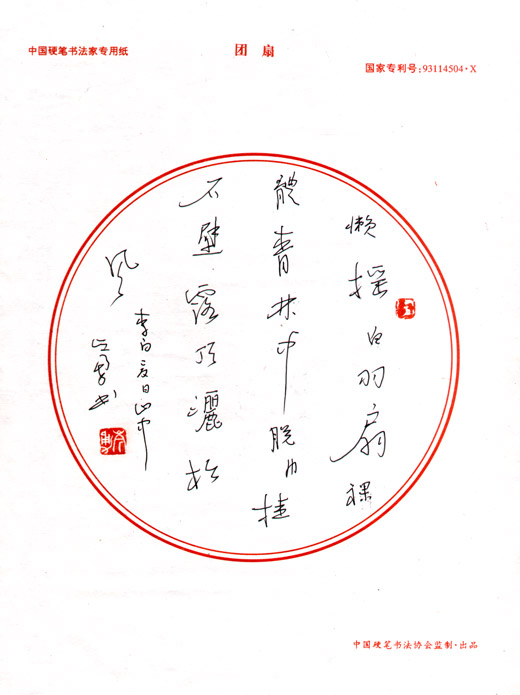 中国硬笔书法家专用纸
团扇
国家专利号:93114504·X
懒摇白羽扇裸
體青林中脱巾挂
石壁露顶灑松
风
李白夏日山中
中国硬笔书法协会监制·出品